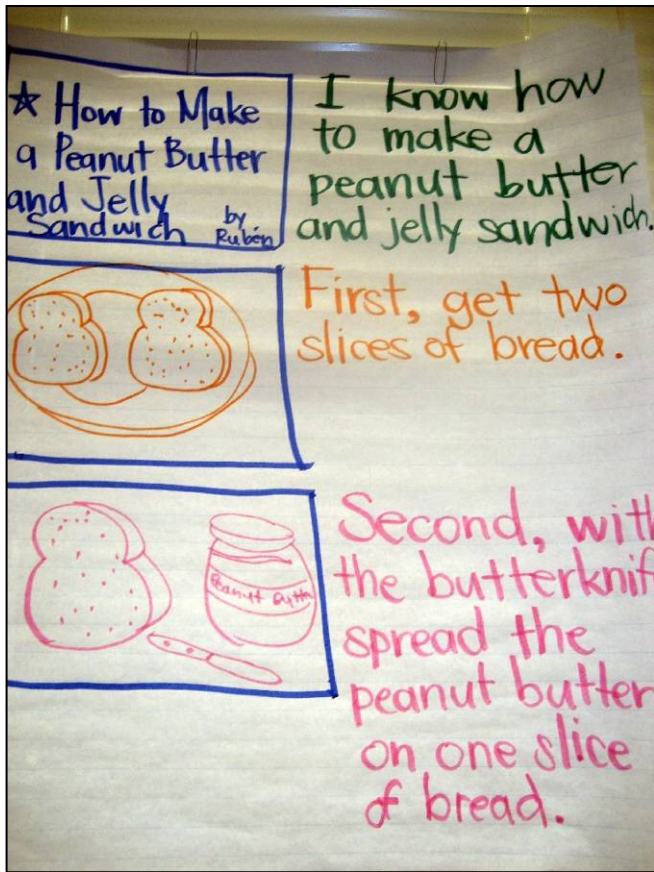 ☆ How to Make
a Peanut Butter
and Jelly
Sandwich by
Rubén
I know how
to make a
peanut butter
and jelly sandwich.
First, get two
slices of bread.
Peanut Butte
Second, with
the butterknif
spread the
peanut butter
on one slice
of bread.